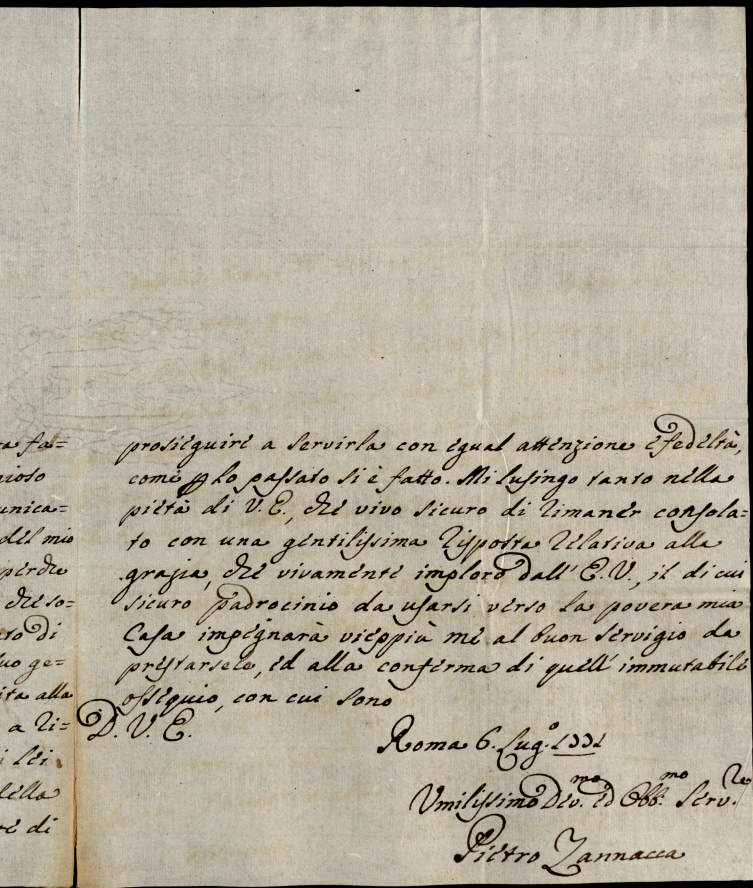 ra fa=
gioso
unica=
del mio
perche
che so=
ro di
suo ge=
ita alla
a ri=
i lei
della
re di
proseguire a servirla con egual attenzione e fedeltà,
come p lo passato si è fatto. Mi lusingo tanto nella
pietà di V. E., che vivo sicuro di rimaner consola=
to con una gentilissima risposta relativa alla
grazia, che vivamente imploro dall' E. V., il di cui
sicuro padrocinio da usarsi verso la povera mia
Casa impegnarà vieppiù me al buon servigio da
prestarsele, ed alla conferma di quell' immutabile
ossequio, con cui sono
D. V. E.
Roma 6. Lug.º
Umilissimo Dev.mo ed Obb.mo Serv.re
Pietro Zannacca